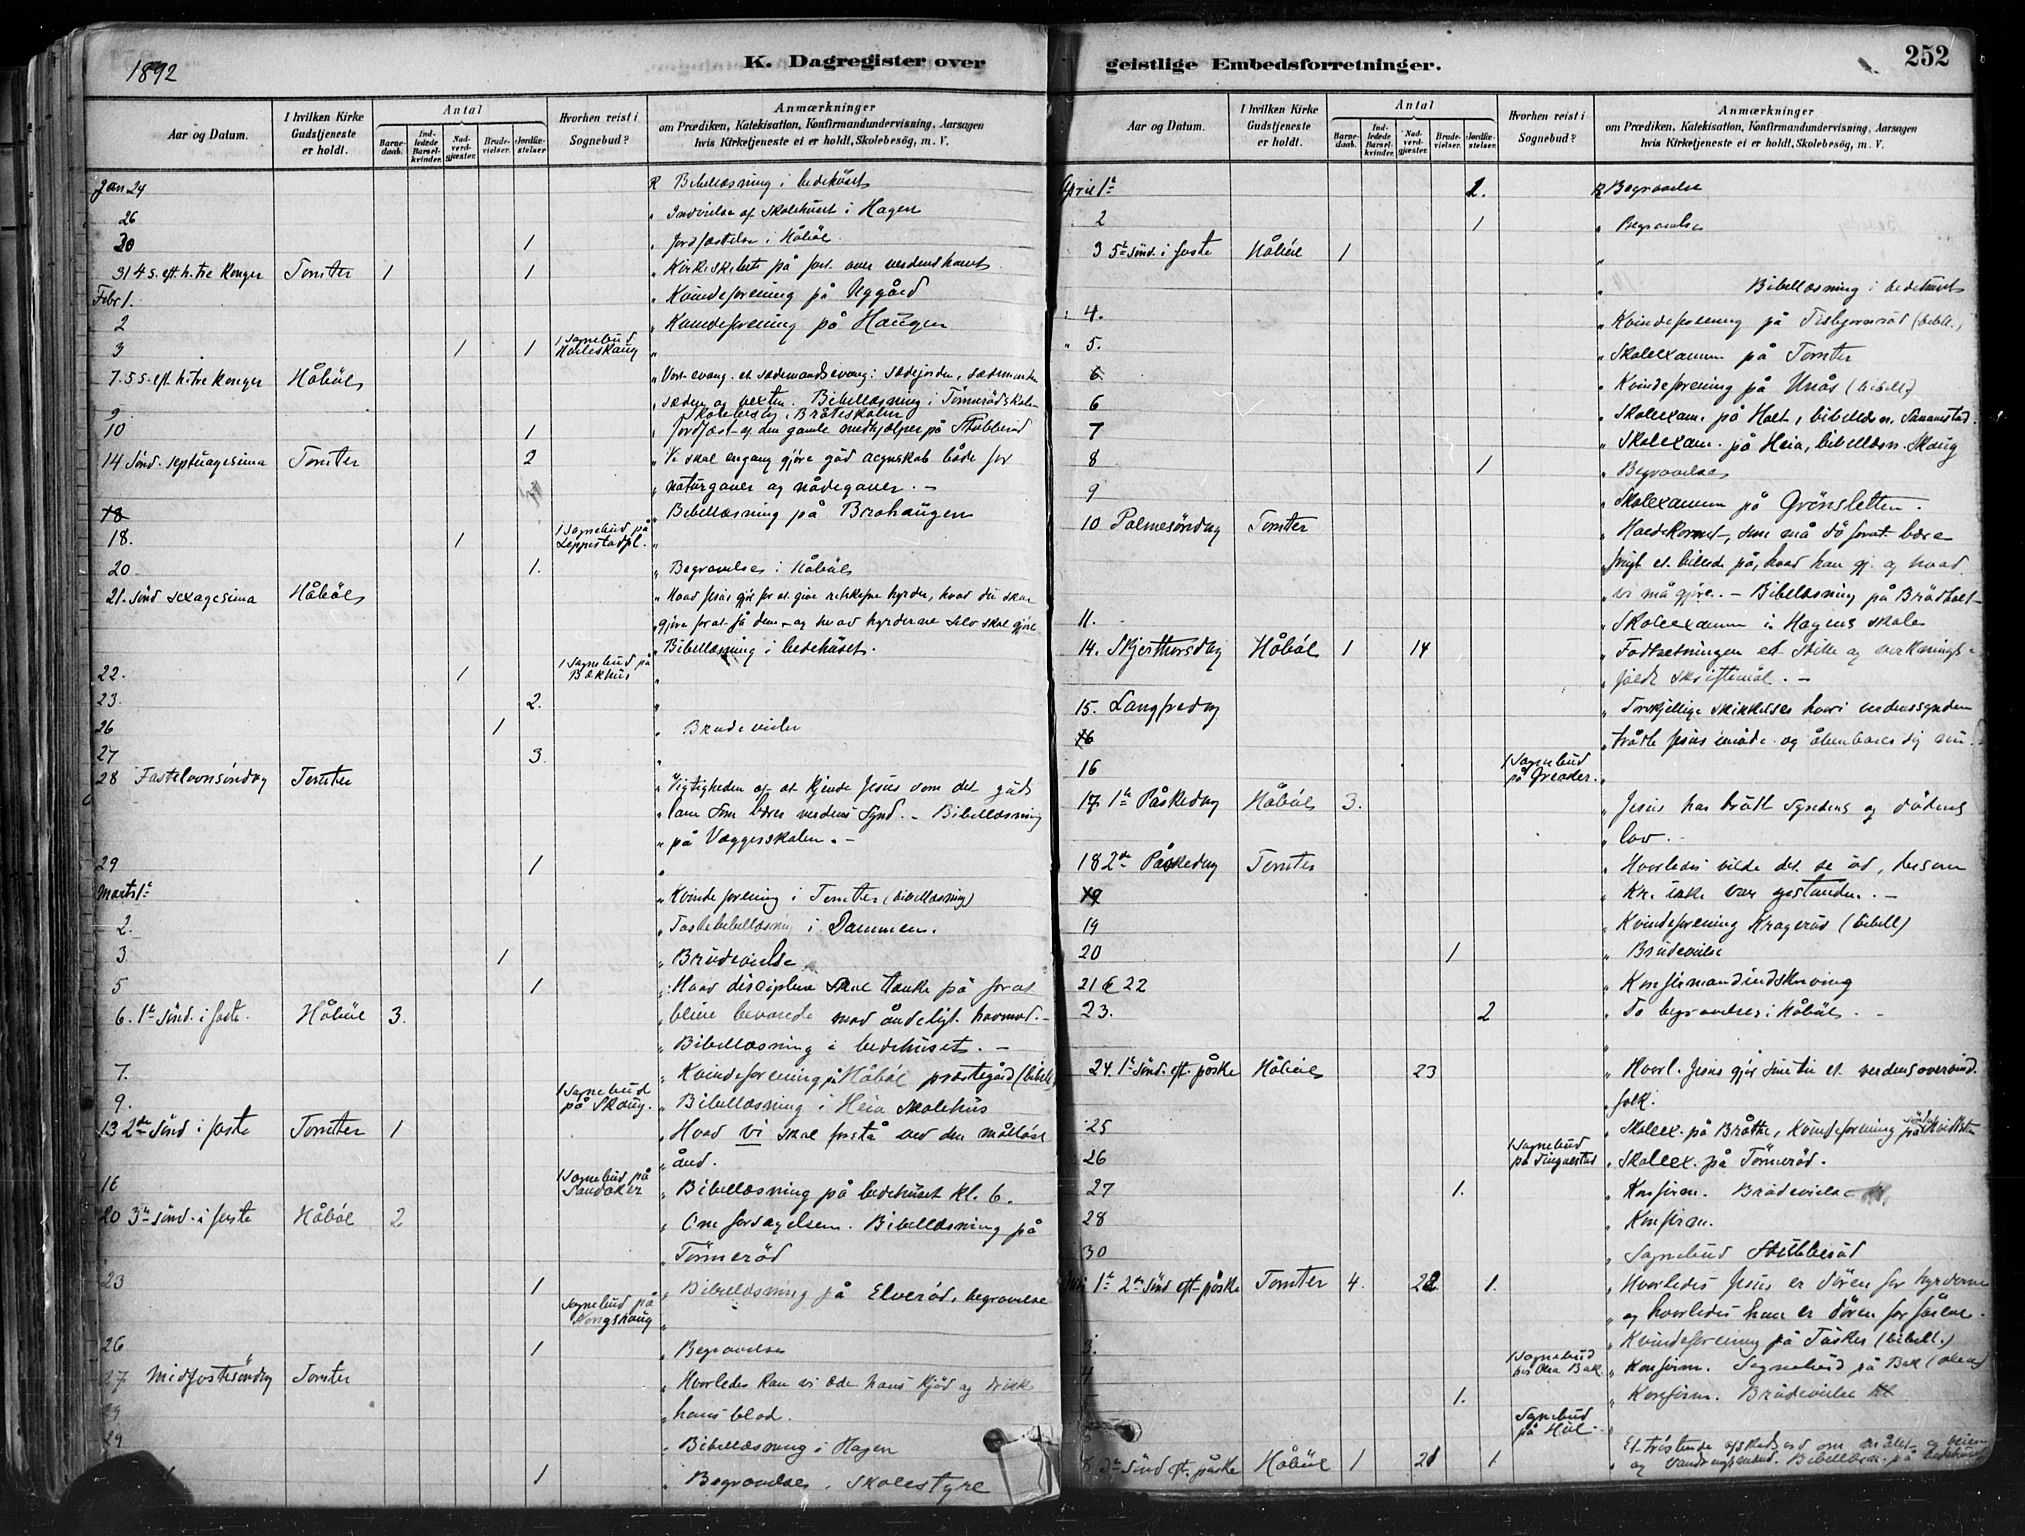 1892
K. Dagregister over
Aar og Datum.
I hvilken Kirke Gudstjeneste er holdt.
Antal
Barnedaab.
Indledede Barselkvinder.
Nadverdgjæster.
Brudevielser.
Jordfæstelser
Hvorhen reist i Sognebud?
Anmærkninger
om Prædiken, Katekisation, Konfirmandundervisning, Aarsagen
hvis Kirketjeneste ei er holdt, Skolebesøg, m. V.
Jan 24 R Bibellæsning i bedehuset
26 " Indvielse af Skolehuset i Hagen
30 1 " Jordfæstelse i Håböl
31 4 s. eft. h. tre Konger Tomter 1 1 "
Febr 1. " Kvindeforening på
2 " Kvindeforening på Haugen
3 1 1 1 Sognebud "
7. 5 s. eft. h. tre Konger Håböl " Vort evang. et sædemandsevang: sædejorden, sædemanden
" sæden og vexten. Bibellæsning i Tömmerödskolen
9 Skolebesög, Bråteskolen
10 1 " Jordfæst. af den gamle medhjælper på Stubberud
14 Sönd. septuagesima Tomter 2 " Vi skal engang gjöre gud regnskab både for
" naturgaver og nådegaver. —
18 " Bibellæsning på Brohaugen
18. 1 1 Sognebud på "
20 1. " Begravelse i Håböl
21. Sönd sexagesima Håböl " Hvad Jesus gjör for at give retskafne hyrder, hvad du skal
" gjöre for at få dem, og hvad hyrderne selv skal gjöre.
" Bibellæsning i bedehuset.
22. 1 1 Sognebud på Bækhus "
23. 2. "
26 1 " Brudevielse
27 3. "
28 Fastelavnsöndag Tomter " Vigtigheden af at kjende Jesus som det guds
" lam som bærer verdens synd. — Bibellæsning
" på Vaggesskolen. —
29 1 "
Marts 1ste " Kvindeforening i Tomter (bibellæsning)
2. " Fastebibellæsning i Dammen.
3. 1 " Brudevielse
5 1 " Hvad disciplene skal tænke på for at
6. 1ste Sönd. i faste. Håböl 3. " blive bevarede mod åndeligt hovmod. —
" Bibellæsning i bedehuset. —
7. " Kvindeforening på Håböl præstegård (bibell)
9. 1 Sognebud på Skaug. " Bibellæsning i Heia Skolehus
13 2den Sönd i faste Tomter 1 " Hvad vi skal forstå ved den målløse
" ånd.
16 1 Sognebud på Sandaker " Bibellæsning på bedehuset kl. 6.
20 3die sönd. i faste Håböl 2 " Om forsagelsen. Bibellæsning på
" Tömmeröd
23 1 " Bibellæsning på Elveröd, begravelse
Sognebud på Kongshaug "
26 1 " Begravelse
27 Midfastesöndag Tomter " Hvorledes kan vi æde hans kjöd og drikke
" hans blod.
29 " Bibellæsning i Hagen
1 " Begravelse. Skolestyre

geistlige Embedsforretninger.
252
Aar og Datum.
I hvilken Kirke Gudstjeneste er holdt.
Antal
Barnedaab.
Indledede Barselkvinder.
Nadverdgjæster.
Brudevielser.
Jordfæstelser.
Hvorhen reist i Sognebud?
Anmærkninger
om Prædiken, Katekisation, Konfirmandundervisning, Aarsagen
hvis Kirketjeneste ei er holdt, Skolebesøg, m. V.
April 1ste 2. R Begravelse
2 1 " Begravelse
3 5te sönd. i faste Håböl 1 "
" Bibellæsning i bedehuset
4. " Kvindeforening på (bibell.)
5. " Skolexamen på Tomter
6 " Kvindeforening på Unås (bibell)
6 " Skolexam. på Holt, bibellæsn.
7 " Skolexam. på Heia, bibellæsn. Skaug
8 1 " Begravelse
9 " Skolexamen på Grönsletten.
10 Palmesöndag Tomter " Hvedekornet, som må dö forat bære
" frugt et billede på, hvad han gj. og hvad
" vi må gjöre. — Bibellæsning på Brådholt
11. " Skolexamen i Hagens skole
14. Skjærthorsdag Håböl 1 14 " Fodtvætningen et stille og virkningsfuldt skriftemål. —
15. Langfredag " Forskjellige skikkelser hvori verdenssynden
16 " trådte Jesus imöde og åbenbarer sig nu.
16 1 Sognebud på Greaker. "
17 1ste Påskedag Håböl 3. " Jesus har brudt syndens og dödens
" lov. —
18 2den Påskedag Tomter " Hvorledes vilde det se ud, dersom
19 " Kr. ikke var opstanden. —
19 " Kvindeforening Krageröd (bibell)
20 1 " Brudevielse
21 & 22 " Konfirmandindskrivning
23. 2 " To begravelser i Håböl. —
24. 1ste Sönd. eft. påske Håböl 23 " Hvorl. Jesus gjör sine til et verdensovervind.
" folk.
25 " Skolex. på Bråtte, Kvindeforening på
26 1 Sognebud på " Skolex. på Tömmeröd.
27 1. " Konfirm. Brudevielse
28 " Konfirm.
30 " Sognebud Stubberud
Mai 1ste 2den Sönd eft. påske Tomter 4. 22 1. " Hvorledes Jesus er dören for hyrderne
" og hvorledes han er dören for fårene.
3. " Kvindeforening på Tasker (bibell.)
4 1 Sognebud hos Olea Bak " Konfirm. Sognebud på Bak (Olea)
5 1. " Konfirm. Brudevielse
6 Sognebud på Hol.
8 3die Sönd eft. påske Håböl 1 21 1 " Et tröstende afskedsord om målet og veien
" og vandringsmænd. Bibellæsn. på bedehuset